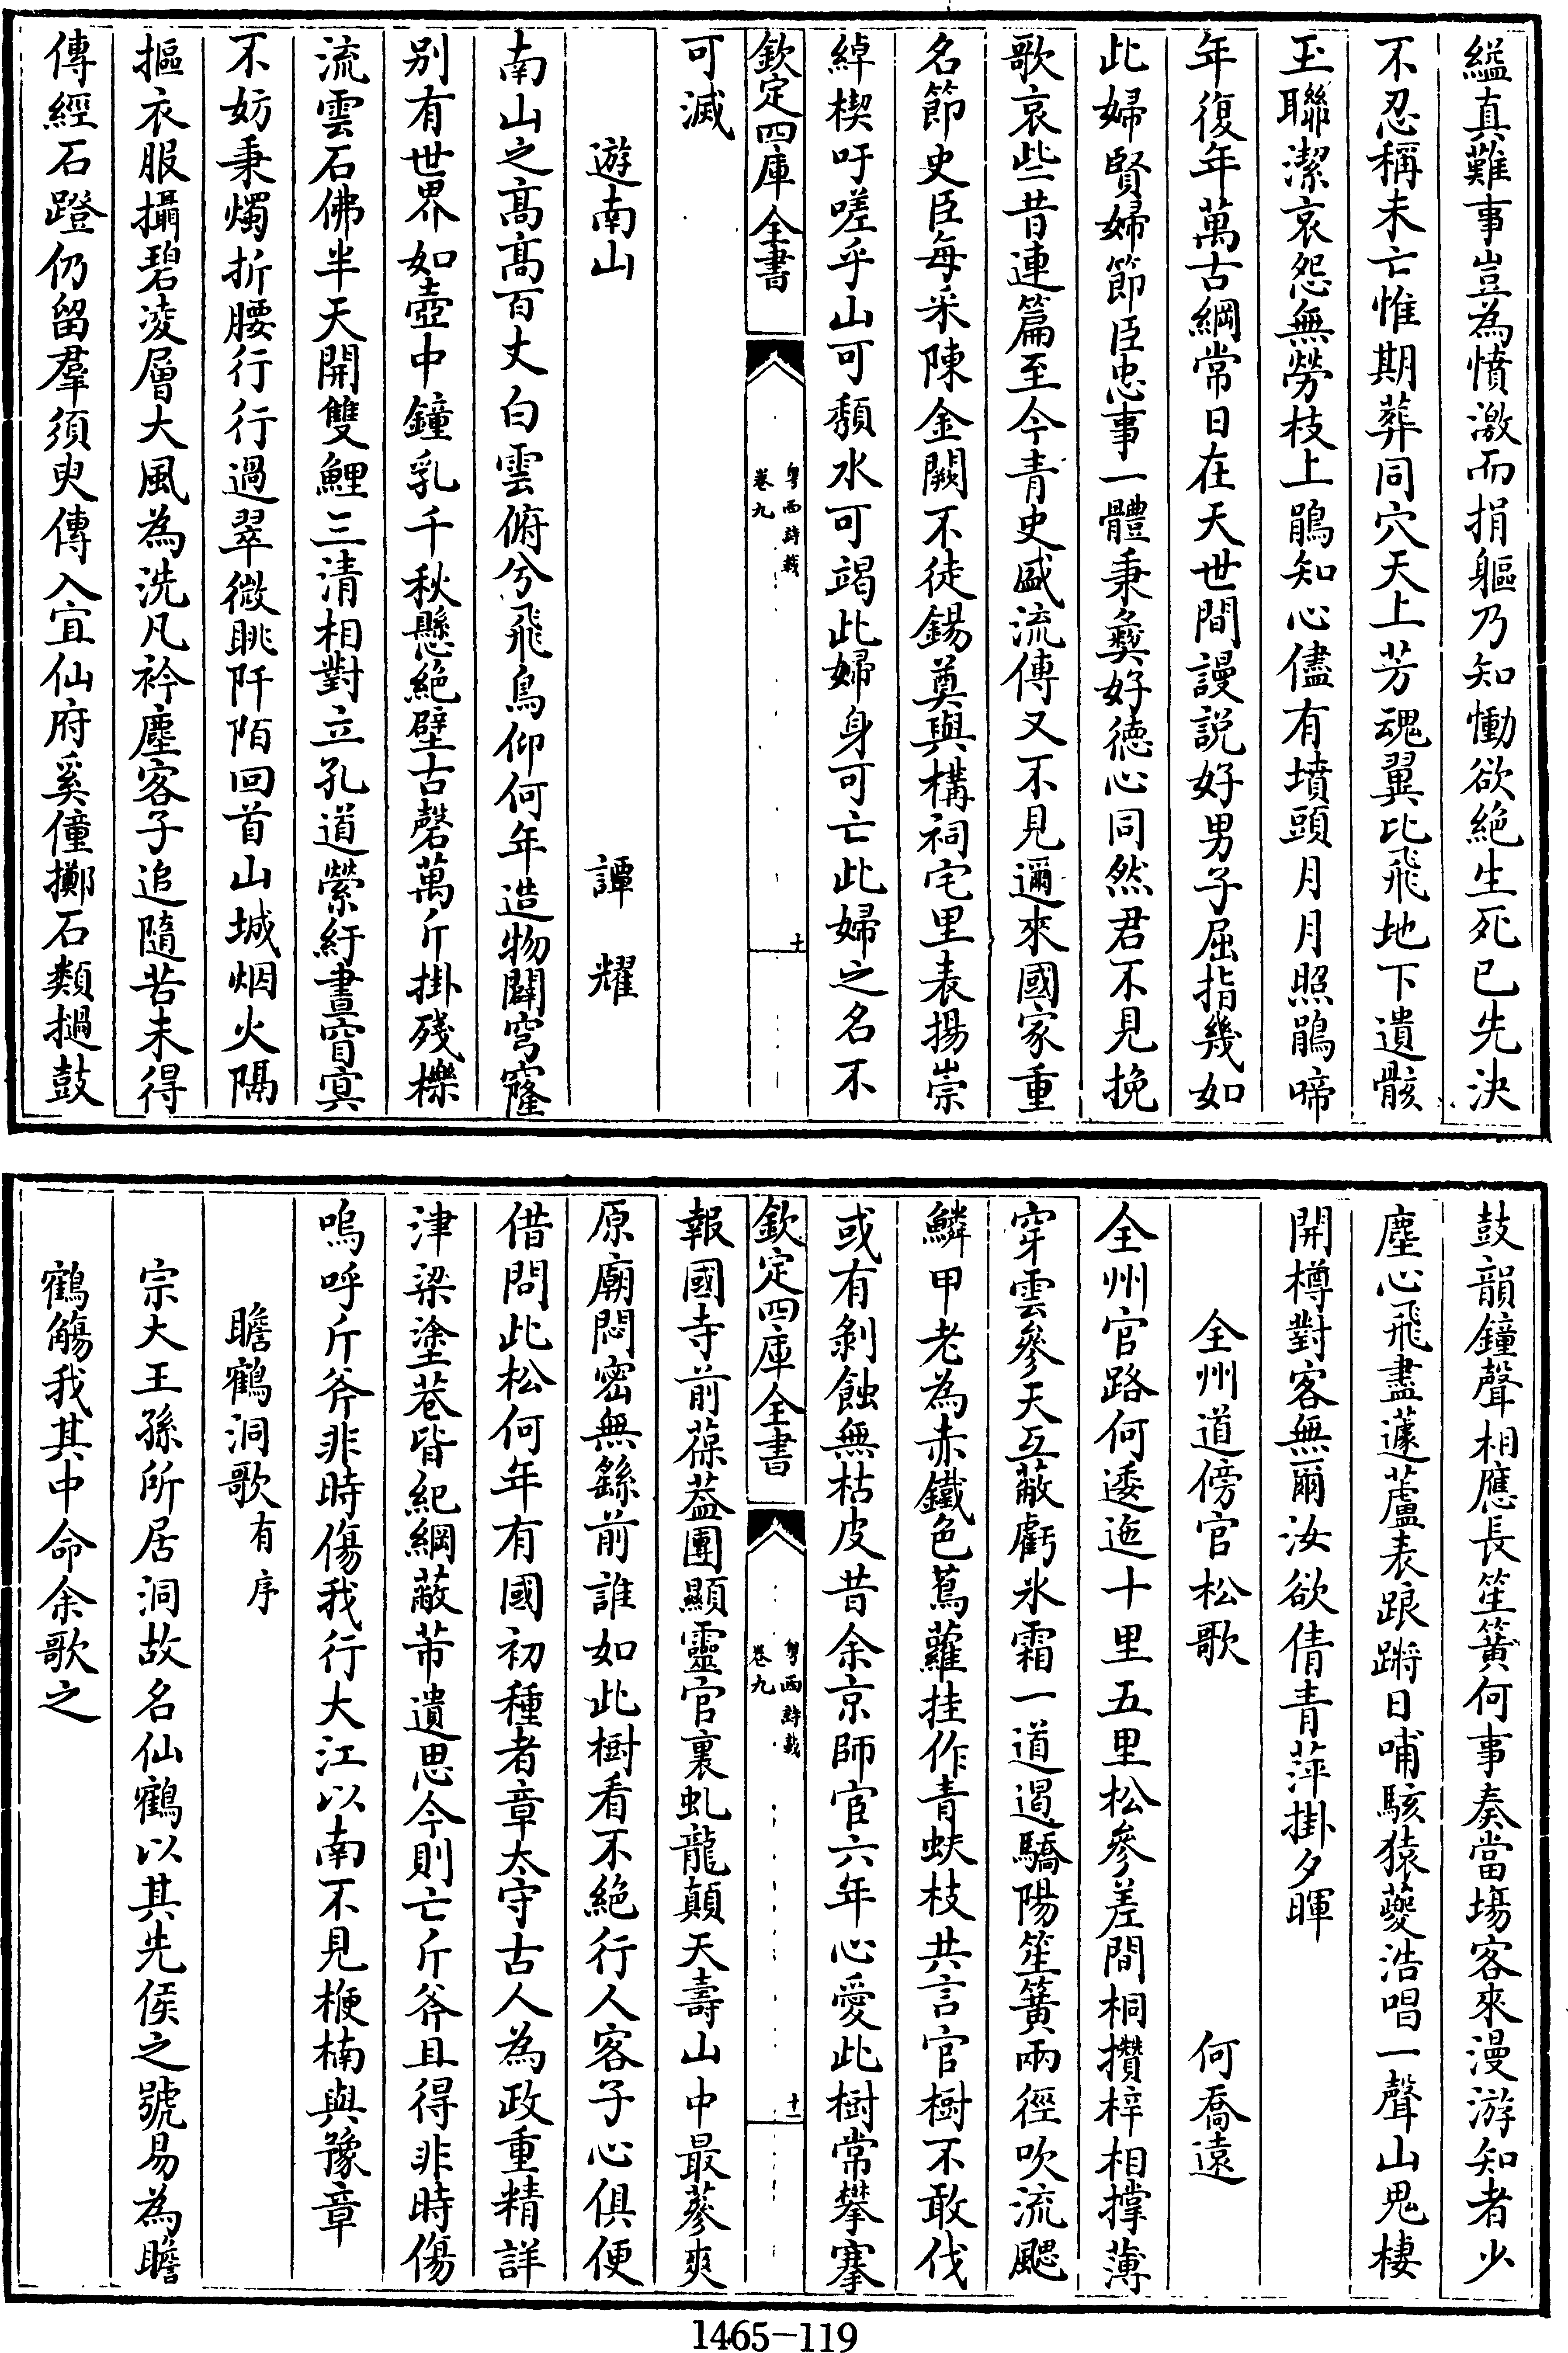 縊真難事豈為憤激而捐軀乃知慟欲絶生死已先決
不忍稱未亡惟期葬同穴天上芳魂翼比飛地下遺骸
玉聯潔哀怨無勞枝上鵑知心儘有墳頭月月照鵑啼
年復年萬古綱常日在天世間謾説好男子屈指幾如
此婦賢婦節臣忠事一體秉彜好徳心同然君不見挽
歌哀些昔連篇至今青史盛流傳又不見邇來國家重
名節史臣每采陳金闕不徒錫奠與構祠宅里表揚崇
綽楔吁嗟乎山可頽水可竭此婦身可亡此婦之名不
欽定四庫全書
粤西詩載
卷九
十
可滅
遊南山
譚耀
南山之高高百丈白雲俯兮飛鳥仰何年造物闢穹窿
别有世界如壺中鐘乳千秋懸絶壁古磬萬斤掛殘櫟
流雲石佛半天開雙鯉三清相對立孔道縈紆晝窅寞
不妨秉燭折腰行行過翠微眺阡陌回首山城烟火隔
摳衣服攝碧凌層大風為洗凡衿塵客子追隨苦未得
傳經石蹬仍留羣須臾傳入宜仙府奚僮擲石類撾鼓
鼓韻鐘聲相應長笙簧何事奏當塲客來漫游知者少
塵心飛盡蘧蘆表踉蹡日晡駭猿夔浩唱一聲山鬼棲
開樽對客無爾汝欲倩青萍掛夕暉
全州道傍官松歌
何喬遠
全州官路何逶迤十里五里松參差間桐攅梓相撑薄
穿雲參天互蔽虧氷霜一道遏驕陽笙簧兩徑吹流颸
鱗甲老為赤鐵色蔦蘿挂作青蚨枝共言官樹不敢伐
或有剝蝕無枯皮昔余京師官六年心愛此樹常攀搴
欽定四庫全書
粤西詩載
卷九
十一
報國寺前葆葢團顯靈官裏虬龍顛天壽山中最蔘爽
原廟閟密無繇前誰如此樹看不絶行人客子心俱便
借問此松何年有國初種者章太守古人為政重精詳
津梁塗巷皆紀綱蔽芾遺思今則亡斤斧且得非時傷
嗚呼斤斧非時傷我行大江以南不見楩楠與豫章
瞻鶴洞歌有序
宗大王孫所居洞故名仙鶴以其先侯之號易為瞻
鶴觴我其中命余歌之
1465-119